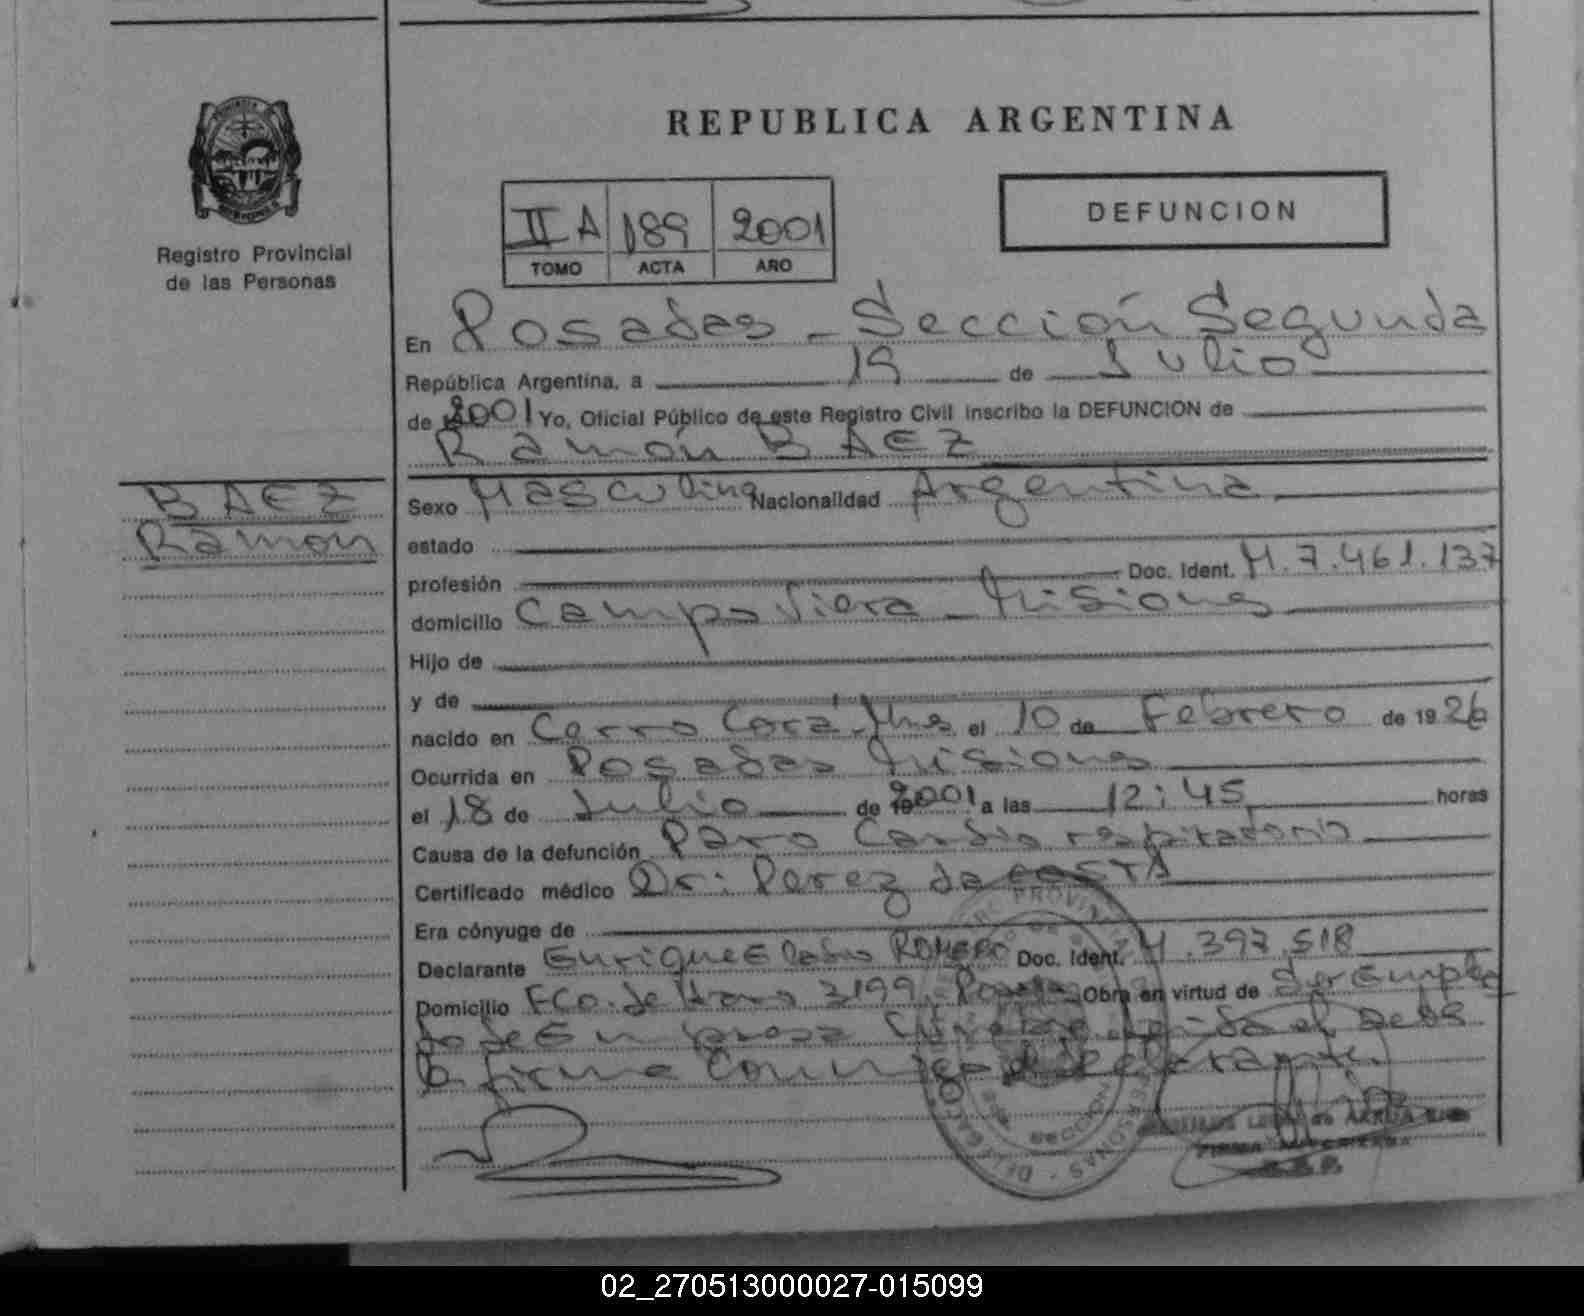 REPUBLICA ARGENTINA
Registro Provincial
de las Personas
II A 189 2001
TOMO ACTA AÑO
DEFUNCION
En Posadas - Sección Segunda
República Argentina, a 19 de Julio
de 2001 Yo, Oficial Público de este Registro Civil inscribo la DEFUNCION de
Ramón BAEZ
BAEZ
Ramón
Sexo Masculino Nacionalidad Argentina
estado
profesión Doc. Ident. M.7.461.137
domicilio Campo Viera - Misiones
Hijo de
y de
nacido en Cerro Corá, Mnes el 10 de Febrero de 1926
Ocurrida en Posadas Misiones
el 18 de Julio de 2001 a las 12:45 horas
Causa de la defunción Paro Cardio respiratorio
Certificado médico Dr: Perez da COSTA
Era cónyuge de
Declarante Enrique ROMERO Doc. Ident. .397.518
Domicilio Fco. de Haro 3199 - Posadas Obra en virtud de Ser Emplea
do de Empresa el acta
la firma conmigo el declarante.
02_270513000027-015099